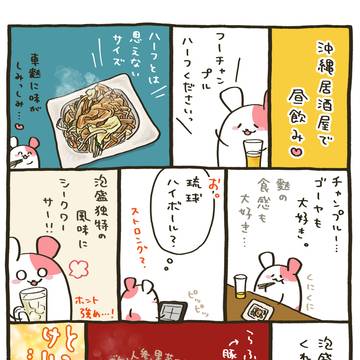 沖縄居酒屋で
昼飲み♥
フーチャン
プル
ハーフください。
ハーフとは
思えない
サイズ
車麩に味が
しみっしみ…♥
チャンプルー…
ゴーヤも
大好き。
麩の
食感も
大好き…
くにくに
くにくに
お。
琉球
ハイボール?
ストロング?
ピッピッ
泡盛独特の
風味に
シークワー
サー!!
ホント
強め…!
泡盛
くわ
らふ